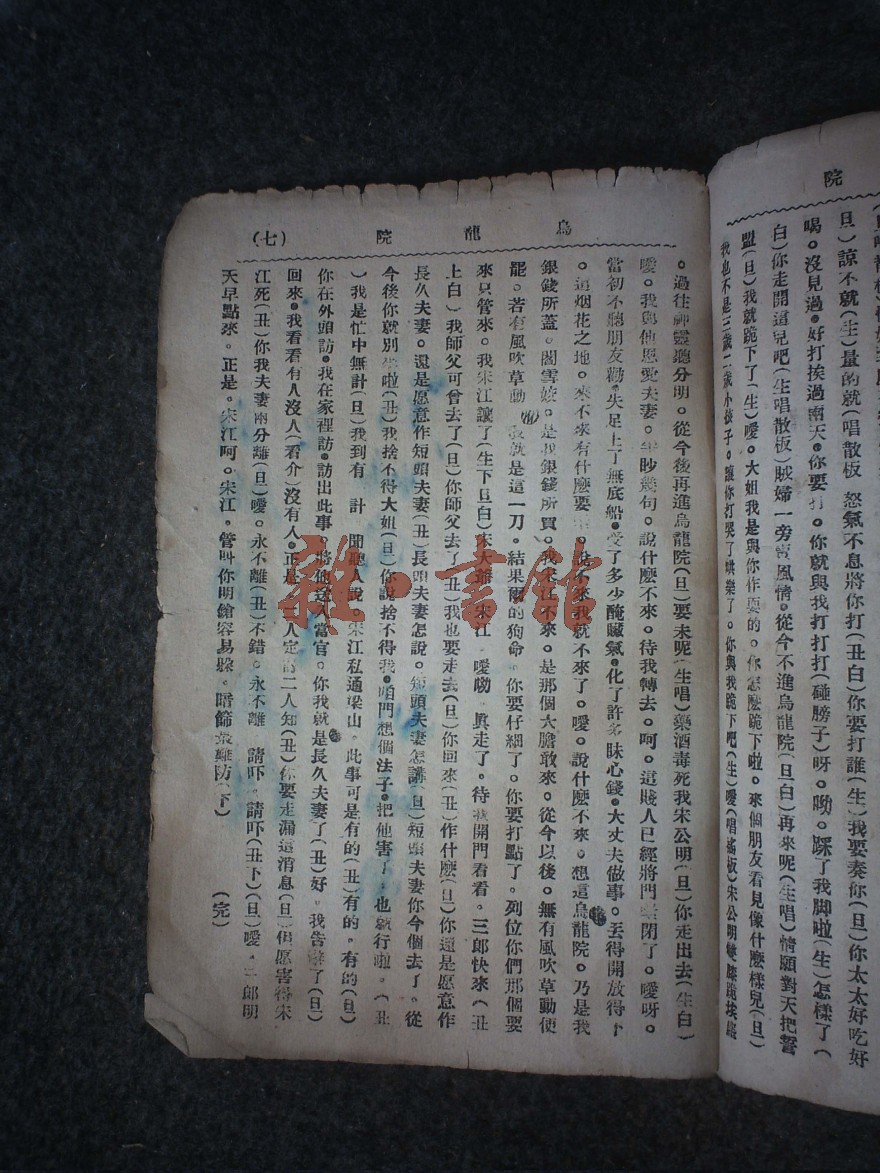 院
旦)諒不就(生)量的就(唱散板 怒氣不息將你打(丑白)你要打誰(生)我要奏你(旦)你太太好吃好
喝。沒見過。好打挨過兩天。你要打。你就與我打打打(碰膀子)呀。呦。踩了我脚啦(生)怎樣了(
白)你走開這兒吧(生唱散板)賊婦一旁賣風情。從今不進烏龍院(旦白)再來呢(生唱)情願對天把誓
盟(旦)我就跪下了(生)噯。大姐我是與你作耍的。你怎麽跪下啦。來個朋友看見像什麽樣兒(旦)
我也不是三歲二歲小孩子。讓你打哭了哄樂了。你與我跪下吧(生)噯(唱搖板)宋公明雙膝跪埃
烏龍院
(七)
。過往神靈聽分明。從今後再進烏龍院(旦)要未呢(生唱)藥酒毒死我宋公明(旦)你走出去(生白)
噯。我與他恩愛夫妻。吵幾句。說什麽不來。待我轉去。呵。這賤人已經將門閉了。噯呀。
當初不聽朋友勸。失足上了無底船。受了多少醃臢氣。化了許多昧心錢。大丈夫做事。丟得開放得下
。這烟花之地。來不來有什麽要。說不來我就不來了。噯。說什麽不來。想這烏龍院。乃是我
銀錢所蓋。閻雪姣。是我銀錢所買。我宋江不來。是那個大膽敢來。從今以後。無有風吹草動便
罷。若有風吹草動。我就是這一刀。結果爾的狗命。你要仔細了。你要打點了。列位你們那個要
來只管來。我宋江讓了(生下旦白)宋大爺。宋江。噯呦。眞走了。待我開門看看。三郎快來(丑
上白)我師父可曾去了(旦)你師父去了(丑)我也要走去(旦)你回來(丑)作什麽(旦)你還是愿意作
長久夫妻。還是愿意作短頭夫妻(丑)長頭夫妻怎說。短頭夫妻怎講(旦)短頭夫妻你今個去了。從
今後你就別來啦(丑)我捨不得大姐(旦)你說捨不得我。咱門想個法子。把他害了。也就行啦。(丑
)我是忙中無計(旦)我到有 計 聞聽人說。宋江私通梁山。此事可是有的(丑)有的。有的(旦)
你在外頭訪。我在家裡訪。訪出此事 將他送入當官。你我就是長久夫妻了(丑)好。我告辭了(旦)
回來。我看看有人沒人(看介)沒有人。正是。一人定的二人知(丑)你要走漏這消息(旦)但愿害得宋
江死(丑)你我夫妻兩分離(旦)噯。永不離(丑)不錯。永不離 請吓。請吓(丑下)(旦)噯。三郎明
天早點來。正是。宋江呵。宋江。管叫你明鎗容易躲。暗箭最難防(下) (完)
雅書館